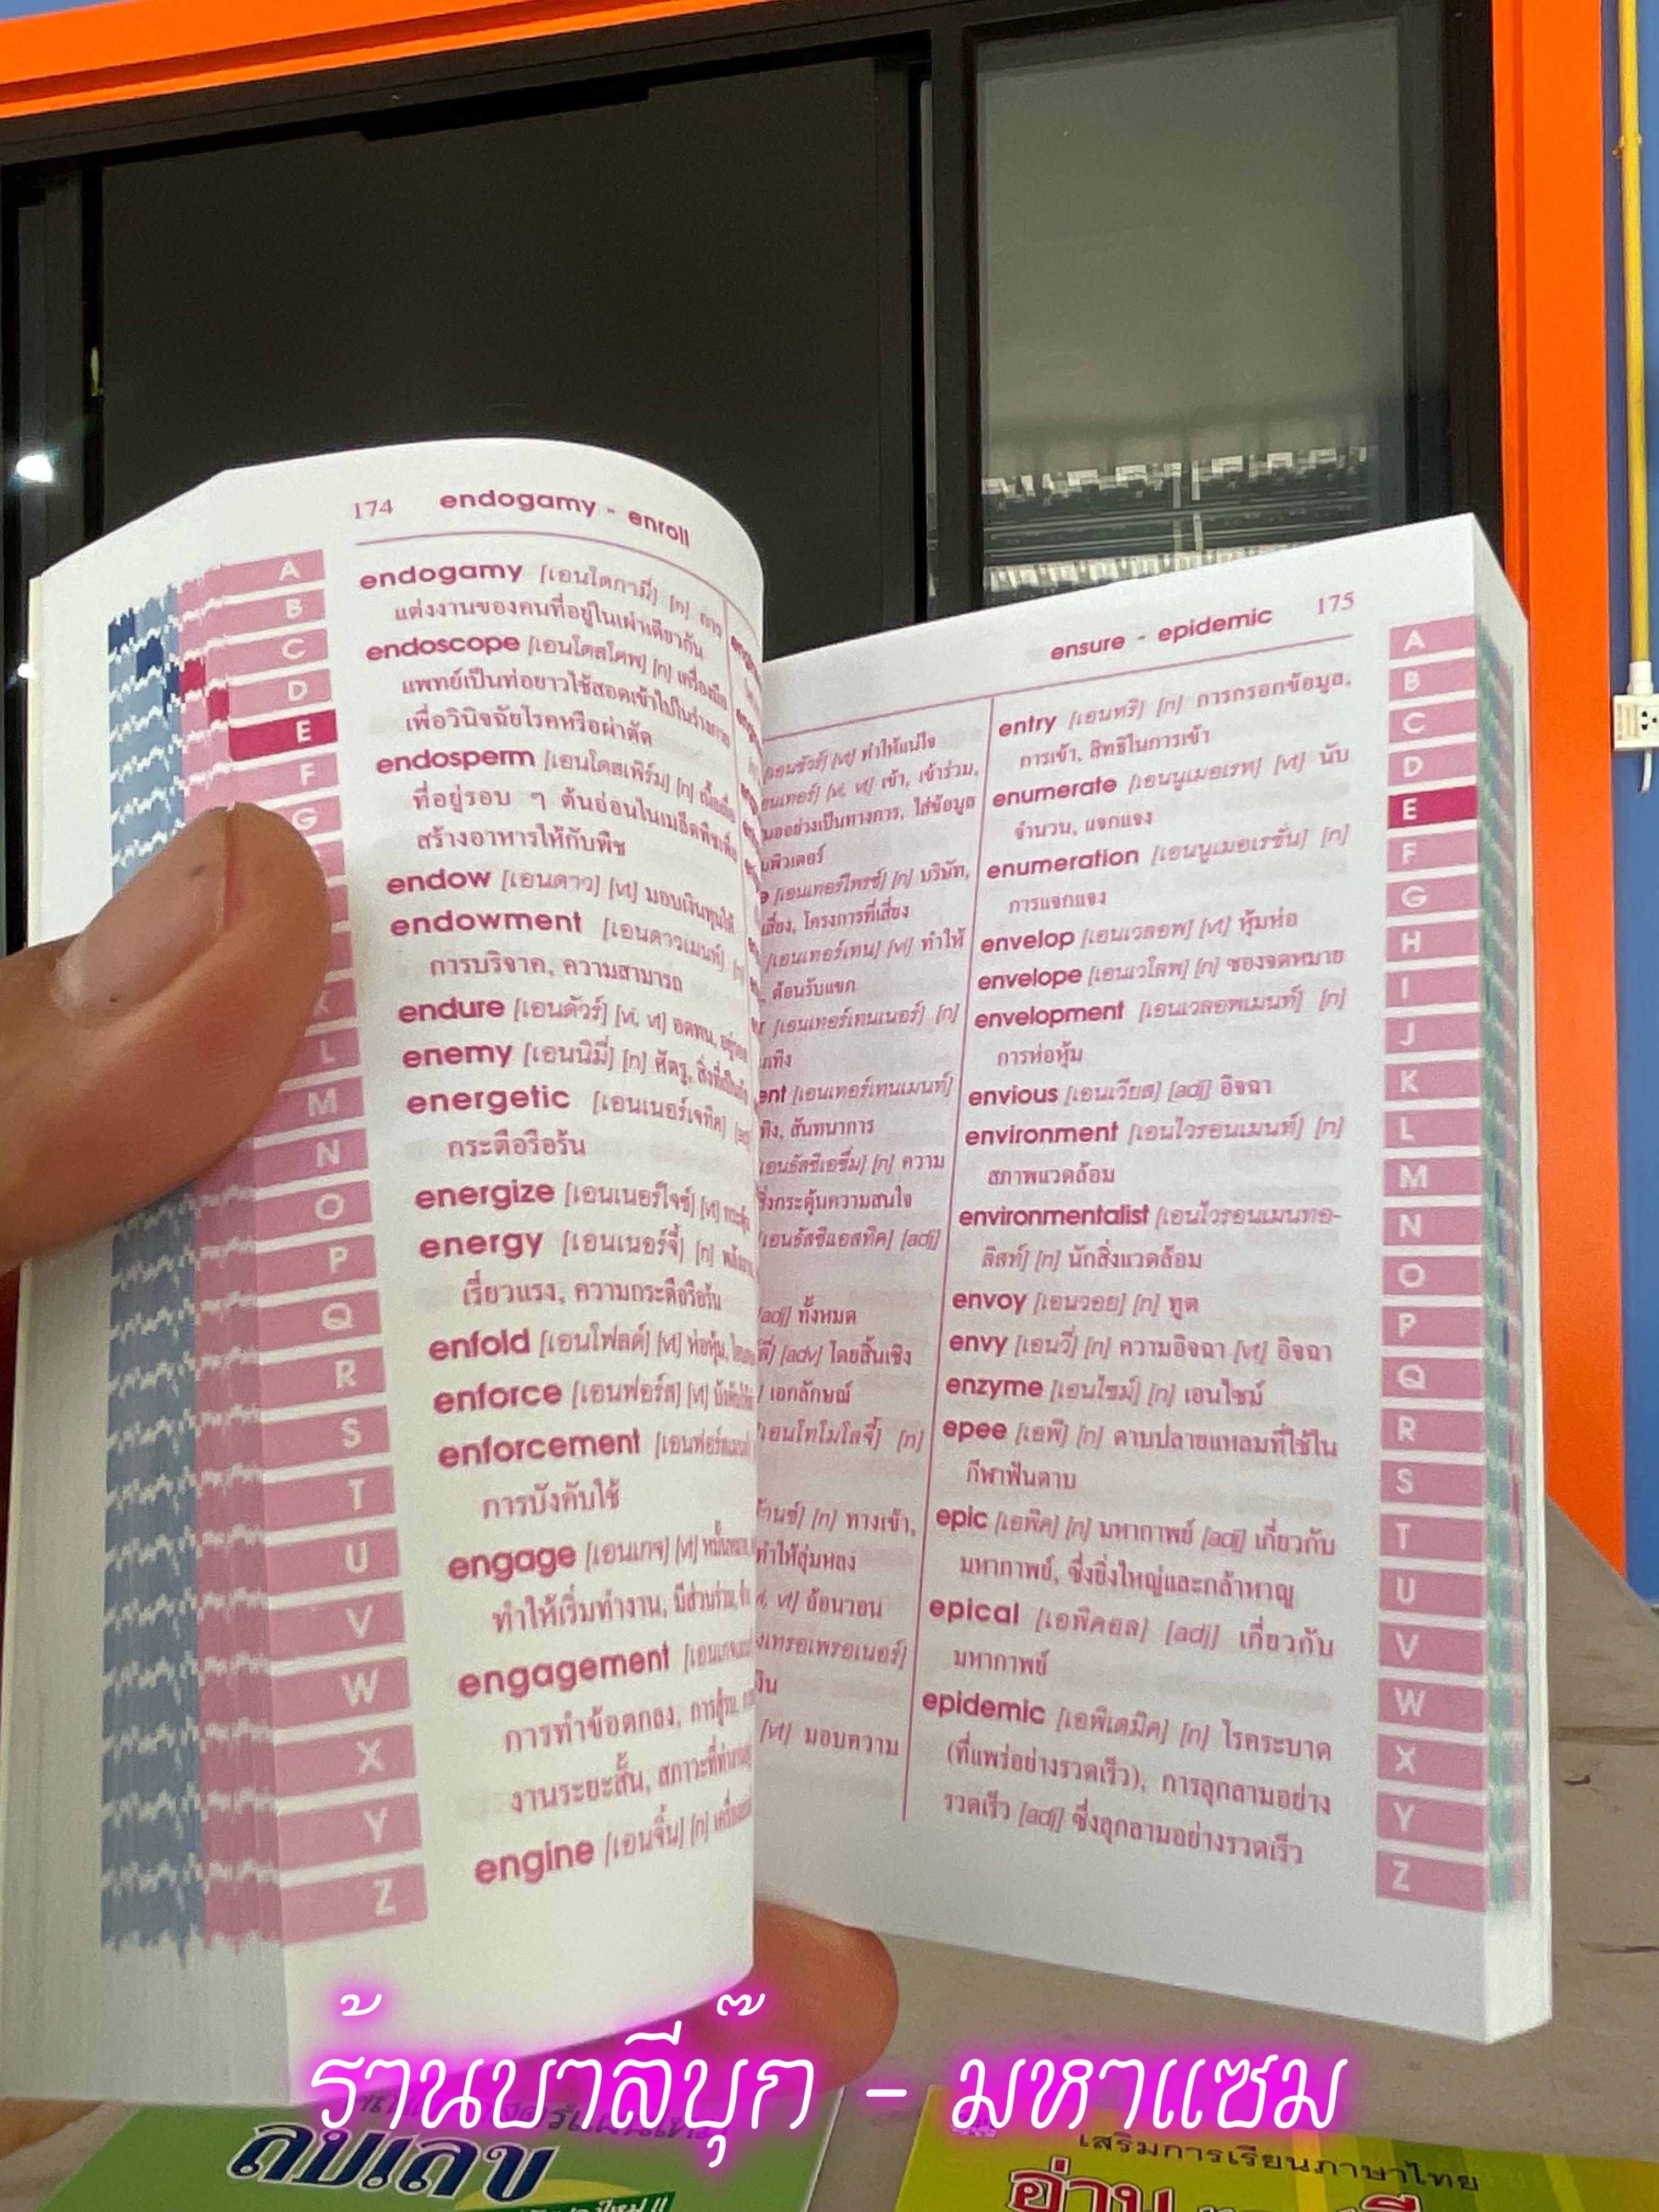 174 endogamy - enroll
A
B
C
D
E
F
G
L
M
N
O
P
Q
R
S
T
U
V
W
X
Y
Z
endogamy [เอนโดกามี่] [n] การ
แต่งงานของคนที่อยู่ในเผ่าเดียวกัน
endoscope [เอนโดสโคพ] [n] เครื่องมือ
แพทย์เป็นท่อยาวใช้สอดเข้าไปในร่างกาย
เพื่อวินิจฉัยโรคหรือผ่าตัด
endosperm [เอนโดสเพิร์ม] [n] เนื้อเยื่อ
ที่อยู่รอบ ๆ ต้นอ่อนในเมล็ดพืชเพื่อ
สร้างอาหารให้กับพืช
endow [เอนดาว] [vt] มอบเงินทุนให้
endowment [เอนดาวเมนท์] [n]
การบริจาค, ความสามารถ
endure [เอนดัวร์] [vi, vt] อดทน,
enemy [เอนนิมี่] [n] ศัตรู,
energetic [เอนเนอร์เจทิค]
กระตือรือร้น
energize [เอนเนอร์ไจซ์] [vt] กระตุ้น
energy [เอนเนอร์จี้] [n]
เรี่ยวแรง, ความกระตือรือร้น
enfold [เอนโฟลด์] [vt] ห่อหุ้ม,
enforce [เอนฟอร์ส] [vt]
enforcement
การบังคับใช้
engage [เอนเกจ] [vt]
ทำให้เริ่มทำงาน, มีส่วนร่วม,
engagement
การทำข้อตกลง, การสู้รบ,
งานระยะสั้น,
engine [เอนจิ้น] [n]
ensure - epidemic 175
[เอนชัวร์] [vt] ทำให้แน่ใจ
[vi, vt] เข้า, เข้าร่วม,
อย่างเป็นทางการ, ใส่ข้อมูล
[เอนเทอร์ไพรซ์] [n] บริษัท,
โครงการที่เสี่ยง
[เอนเทอร์เทน] [vt] ทำให้
ต้อนรับแขก
[เอนเทอร์เทนเนอร์] [n]
[เอนเทอร์เทนเมนท์]
สันทนาการ
[n] ความ
สิ่งกระตุ้นความสนใจ
[เอนธัสซิแอสทิค] [adj]
[adj] ทั้งหมด
[adv] โดยสิ้นเชิง
เอกลักษณ์
[เอนโทโมโลจี้] [n]
[n] ทางเข้า,
ทำให้ลุ่มหลง
vt] อ้อนวอน
[vt] มอบความ
entry [เอนทรี] [n] การกรอกข้อมูล,
การเข้า, สิทธิในการเข้า
enumerate [เอนนูเมอเรท] [vt] นับ
จำนวน, แจกแจง
enumeration [เอนนูเมอเรชั่น] [n]
การแจกแจง
envelop [เอนเวลอพ] [vt] หุ้มห่อ
envelope [เอนเวโลพ] [n] ซองจดหมาย
envelopment [เอนเวลอพเมนท์] [n]
การห่อหุ้ม
envious [เอนเวียส] [adj] อิจฉา
environment [เอนไวรอนเมนท์] [n]
สภาพแวดล้อม
environmentalist [เอนไวรอนเมนทอ-
ลิสท์] [n] นักสิ่งแวดล้อม
envoy [เอนวอย] [n] ทูต
envy [เอนวี่] [n] ความอิจฉา [vt] อิจฉา
enzyme [เอนไซม์] [n] เอนไซม์
epee [เอพี] [n] ดาบปลายแหลมที่ใช้ใน
กีฬาฟันดาบ
epic [เอพิค] [n] มหากาพย์ [adj] เกี่ยวกับ
มหากาพย์, ซึ่งยิ่งใหญ่และกล้าหาญ
epical [เอพิคอล] [adj] เกี่ยวกับ
มหากาพย์
epidemic [เอพิเดมิค] [n] โรคระบาด
(ที่แพร่อย่างรวดเร็ว), การลุกลามอย่าง
รวดเร็ว [adj] ซึ่งลุกลามอย่างรวดเร็ว
A
B
C
D
E
F
G
H
I
J
K
L
M
N
O
P
Q
R
S
T
U
V
W
X
Y
Z
ร้านบาลีบุ๊ก - มหาแซม
ลบเลข
เสริมการเรียนภาษาไทย
อ่าน